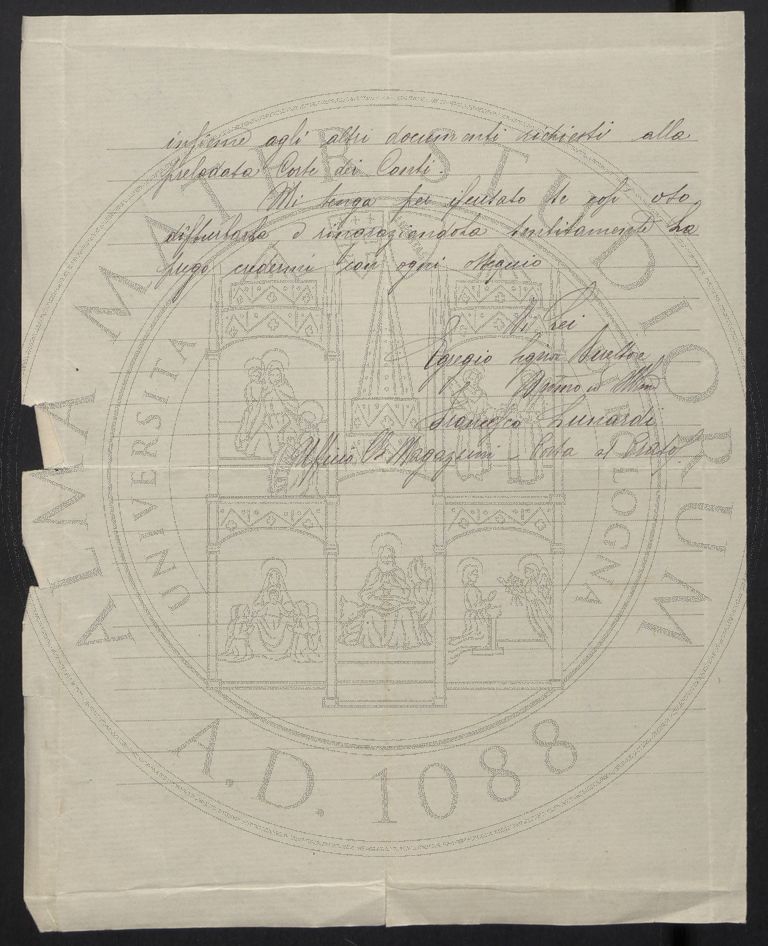 insieme agli altri documenti richiesti alla
prelodata Corte dei Conti.
Mi tenga per iscusato se così oso
disturbarla e ringraziandola sentitamente La
prego credermi con ogni ossequio
Di Lei
Egregio Signor Direttore
Francesco Lunardi
Ufficio Magazzini - Porta al Prato
ALMA MATER STUDIORUM
UNIVERSITA BOLOGNA
A.D. 1088